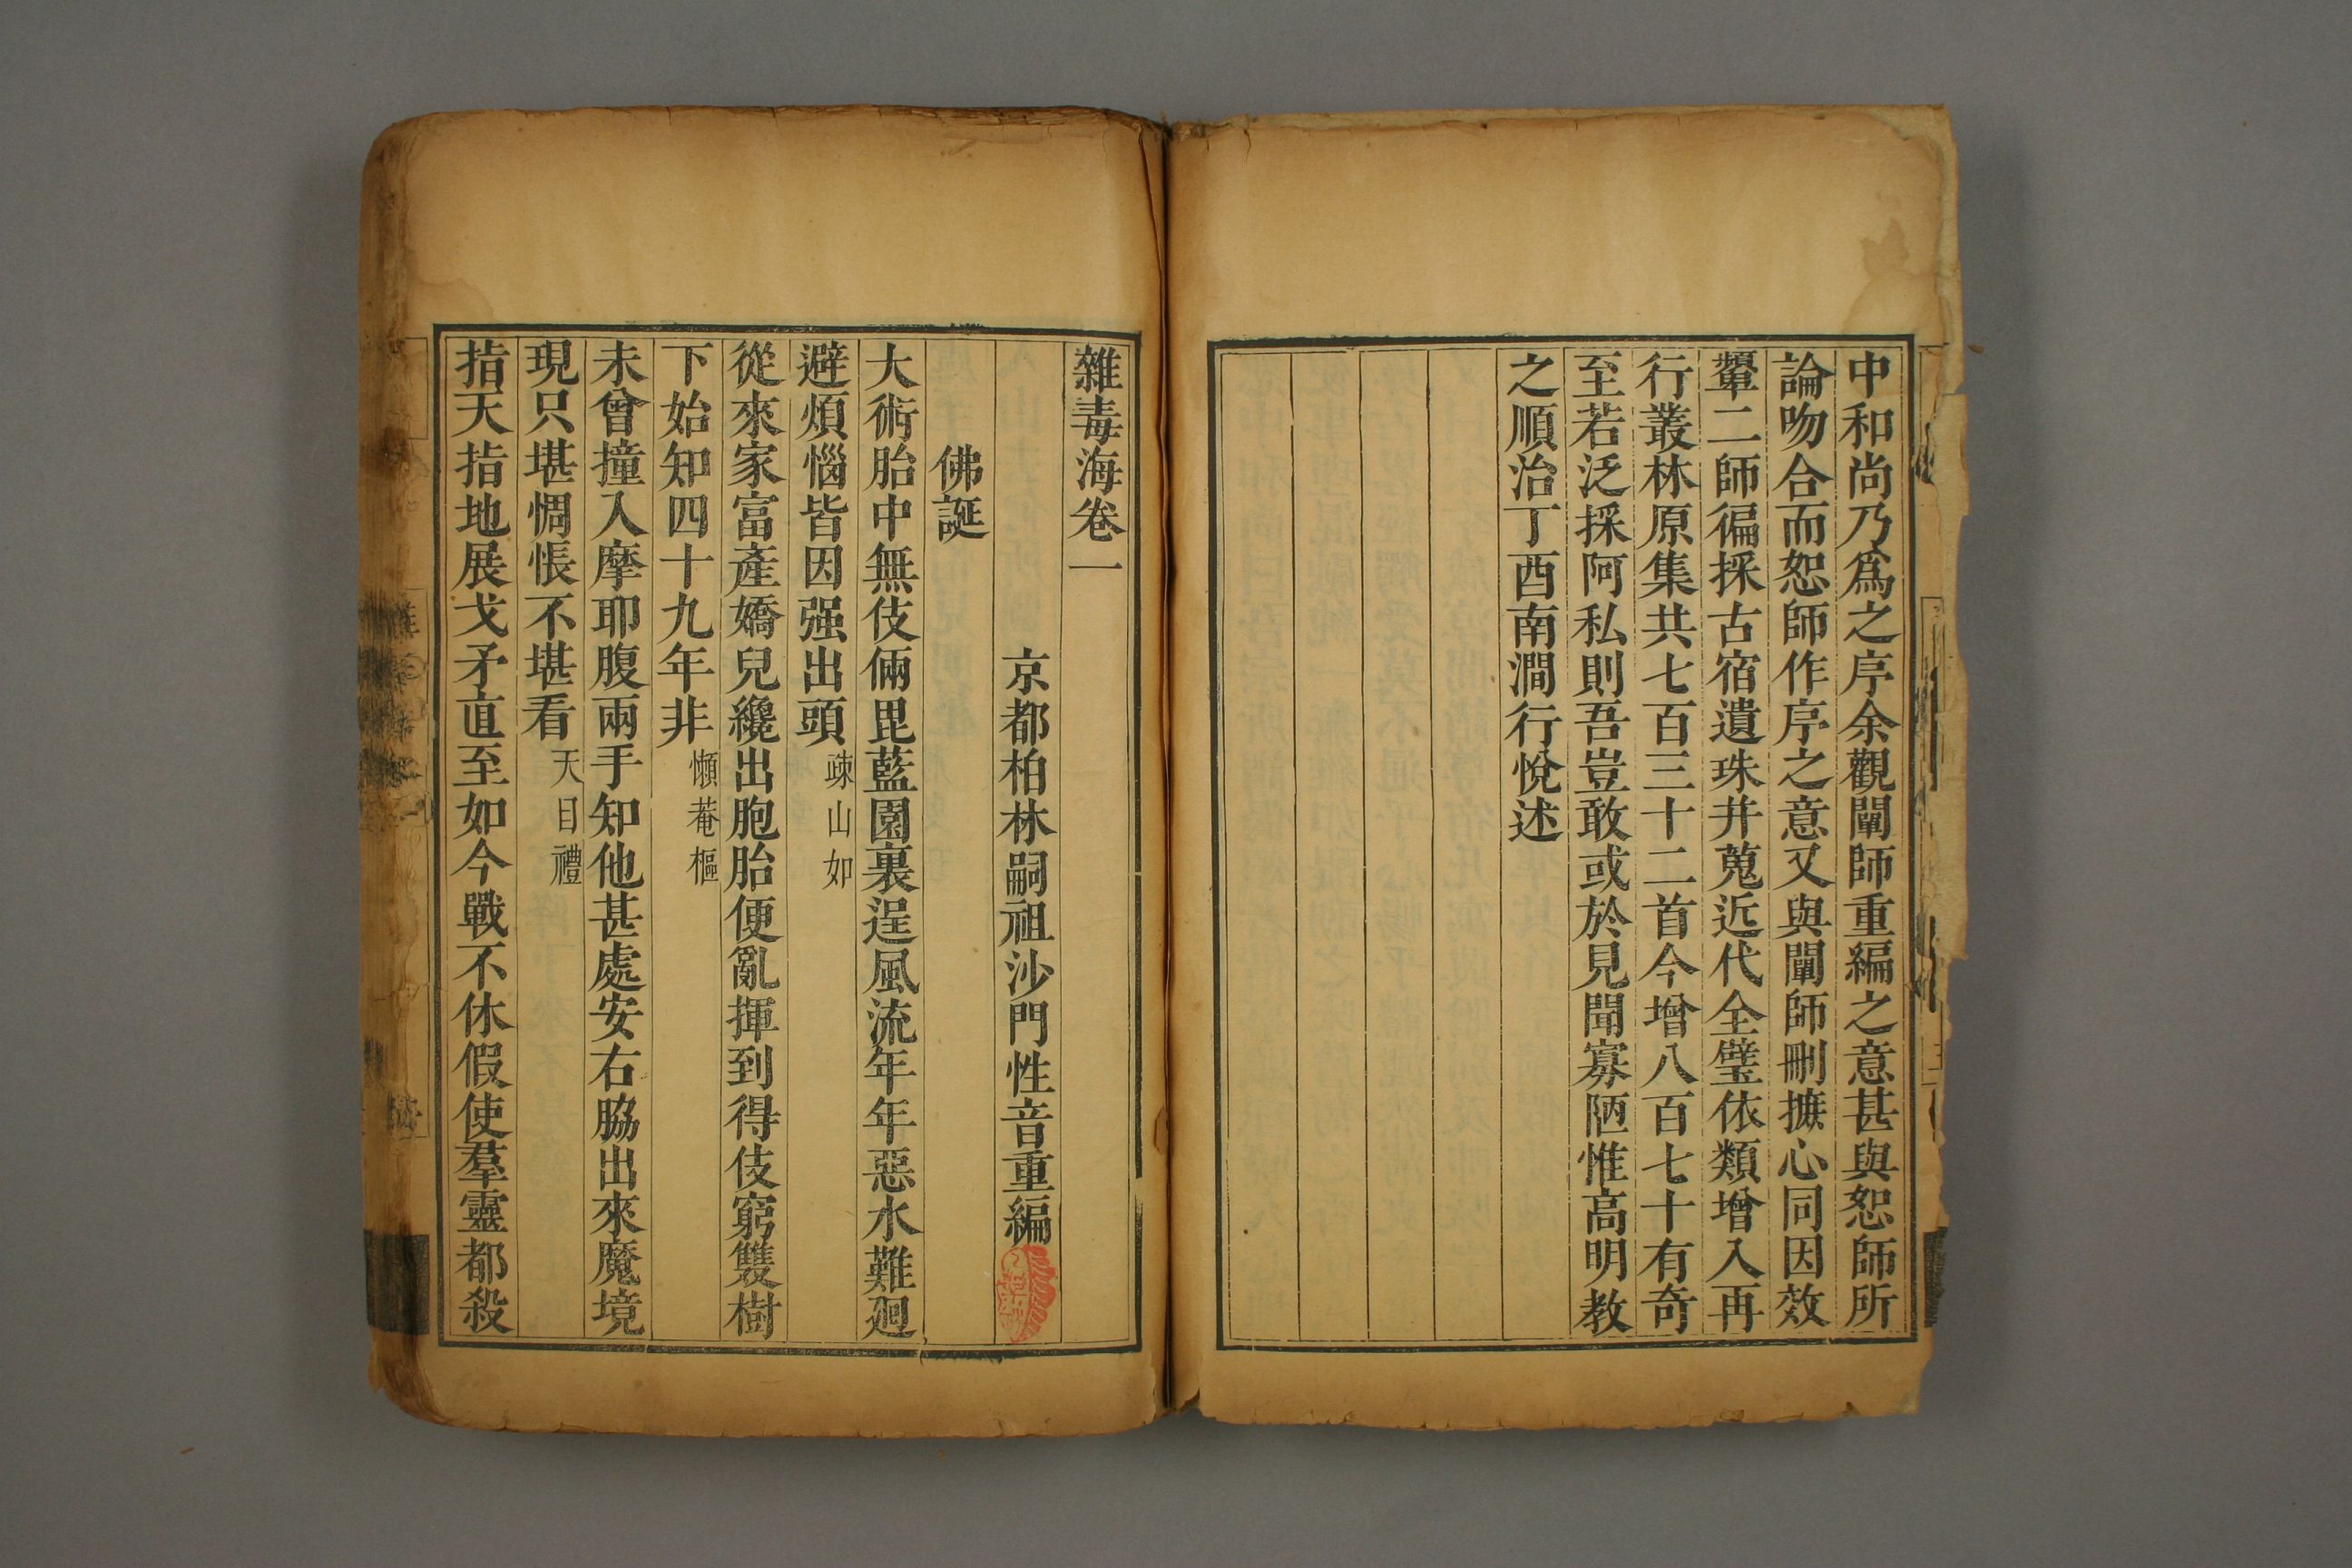 中和尚乃爲之序余觀闡師重編之意甚與恕師所
論吻合而恕師作序之意又與闡師刪摭心同因效
顰二師徧採古宿遺珠并蒐近代全璧依類增入再
行叢林原集共七百三十二首今增八百七十有奇
至若泛採阿私則吾豈敢或於見聞寡陋惟高明教
之順治丁酉南澗行悅述
雜毒海卷一
京都柏林嗣祖沙門性音重編
佛誕
大術胎中無伎倆毘藍園裏逞風流年年惡水難廻
避煩惱皆因强出頭 疎山如
從來家富產嬌兒纔出胞胎便亂揮到得伎窮雙樹
下始知四十九年非 懶菴樞
未曾撞入摩耶腹兩手知他甚處安右脇出來魔境
現只堪惆悵不堪看 天目禮
指天指地展戈矛直至如今戰不休假使羣靈都殺